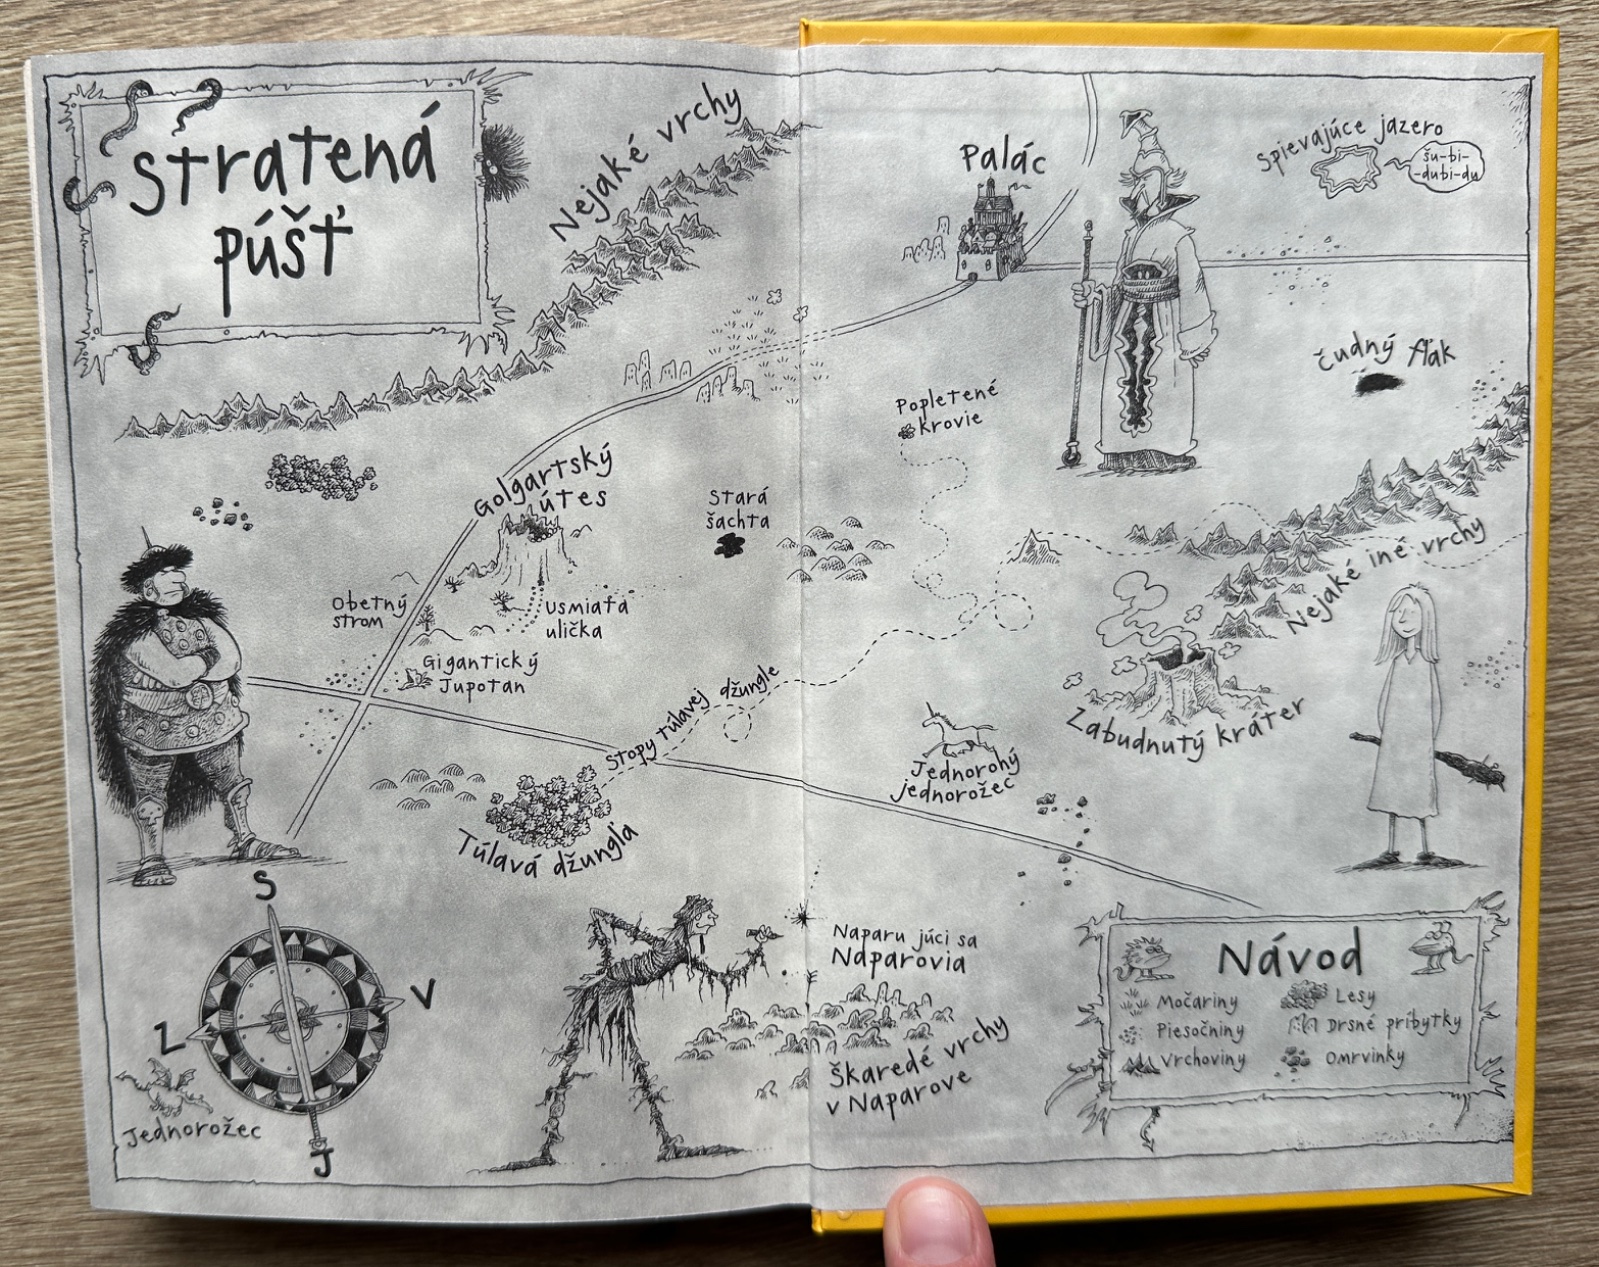 Stratená
púšť
Nejaké vrchy
Palác
Spievajúce jazero
šu-bi-
-dubi-du
čudný fľak
Popletené
krovie
Golgartský
útes
Stará
šachta
Obetný
strom
Usmiata
ulička
Gigantický
Jupotan
Nejaké iné vrchy
Zabudnutý kráter
Stopy túlavej džungle
Jednorohý
jednorožec
Túlavá džungľa
S
V
Z
J
Jednorožec
Naparujúci sa
Naparovia
Škaredé vrchy
v Naparove
Návod
Močariny
Lesy
Piesočniny
Drsné príbytky
Vrchoviny
Omrvinky